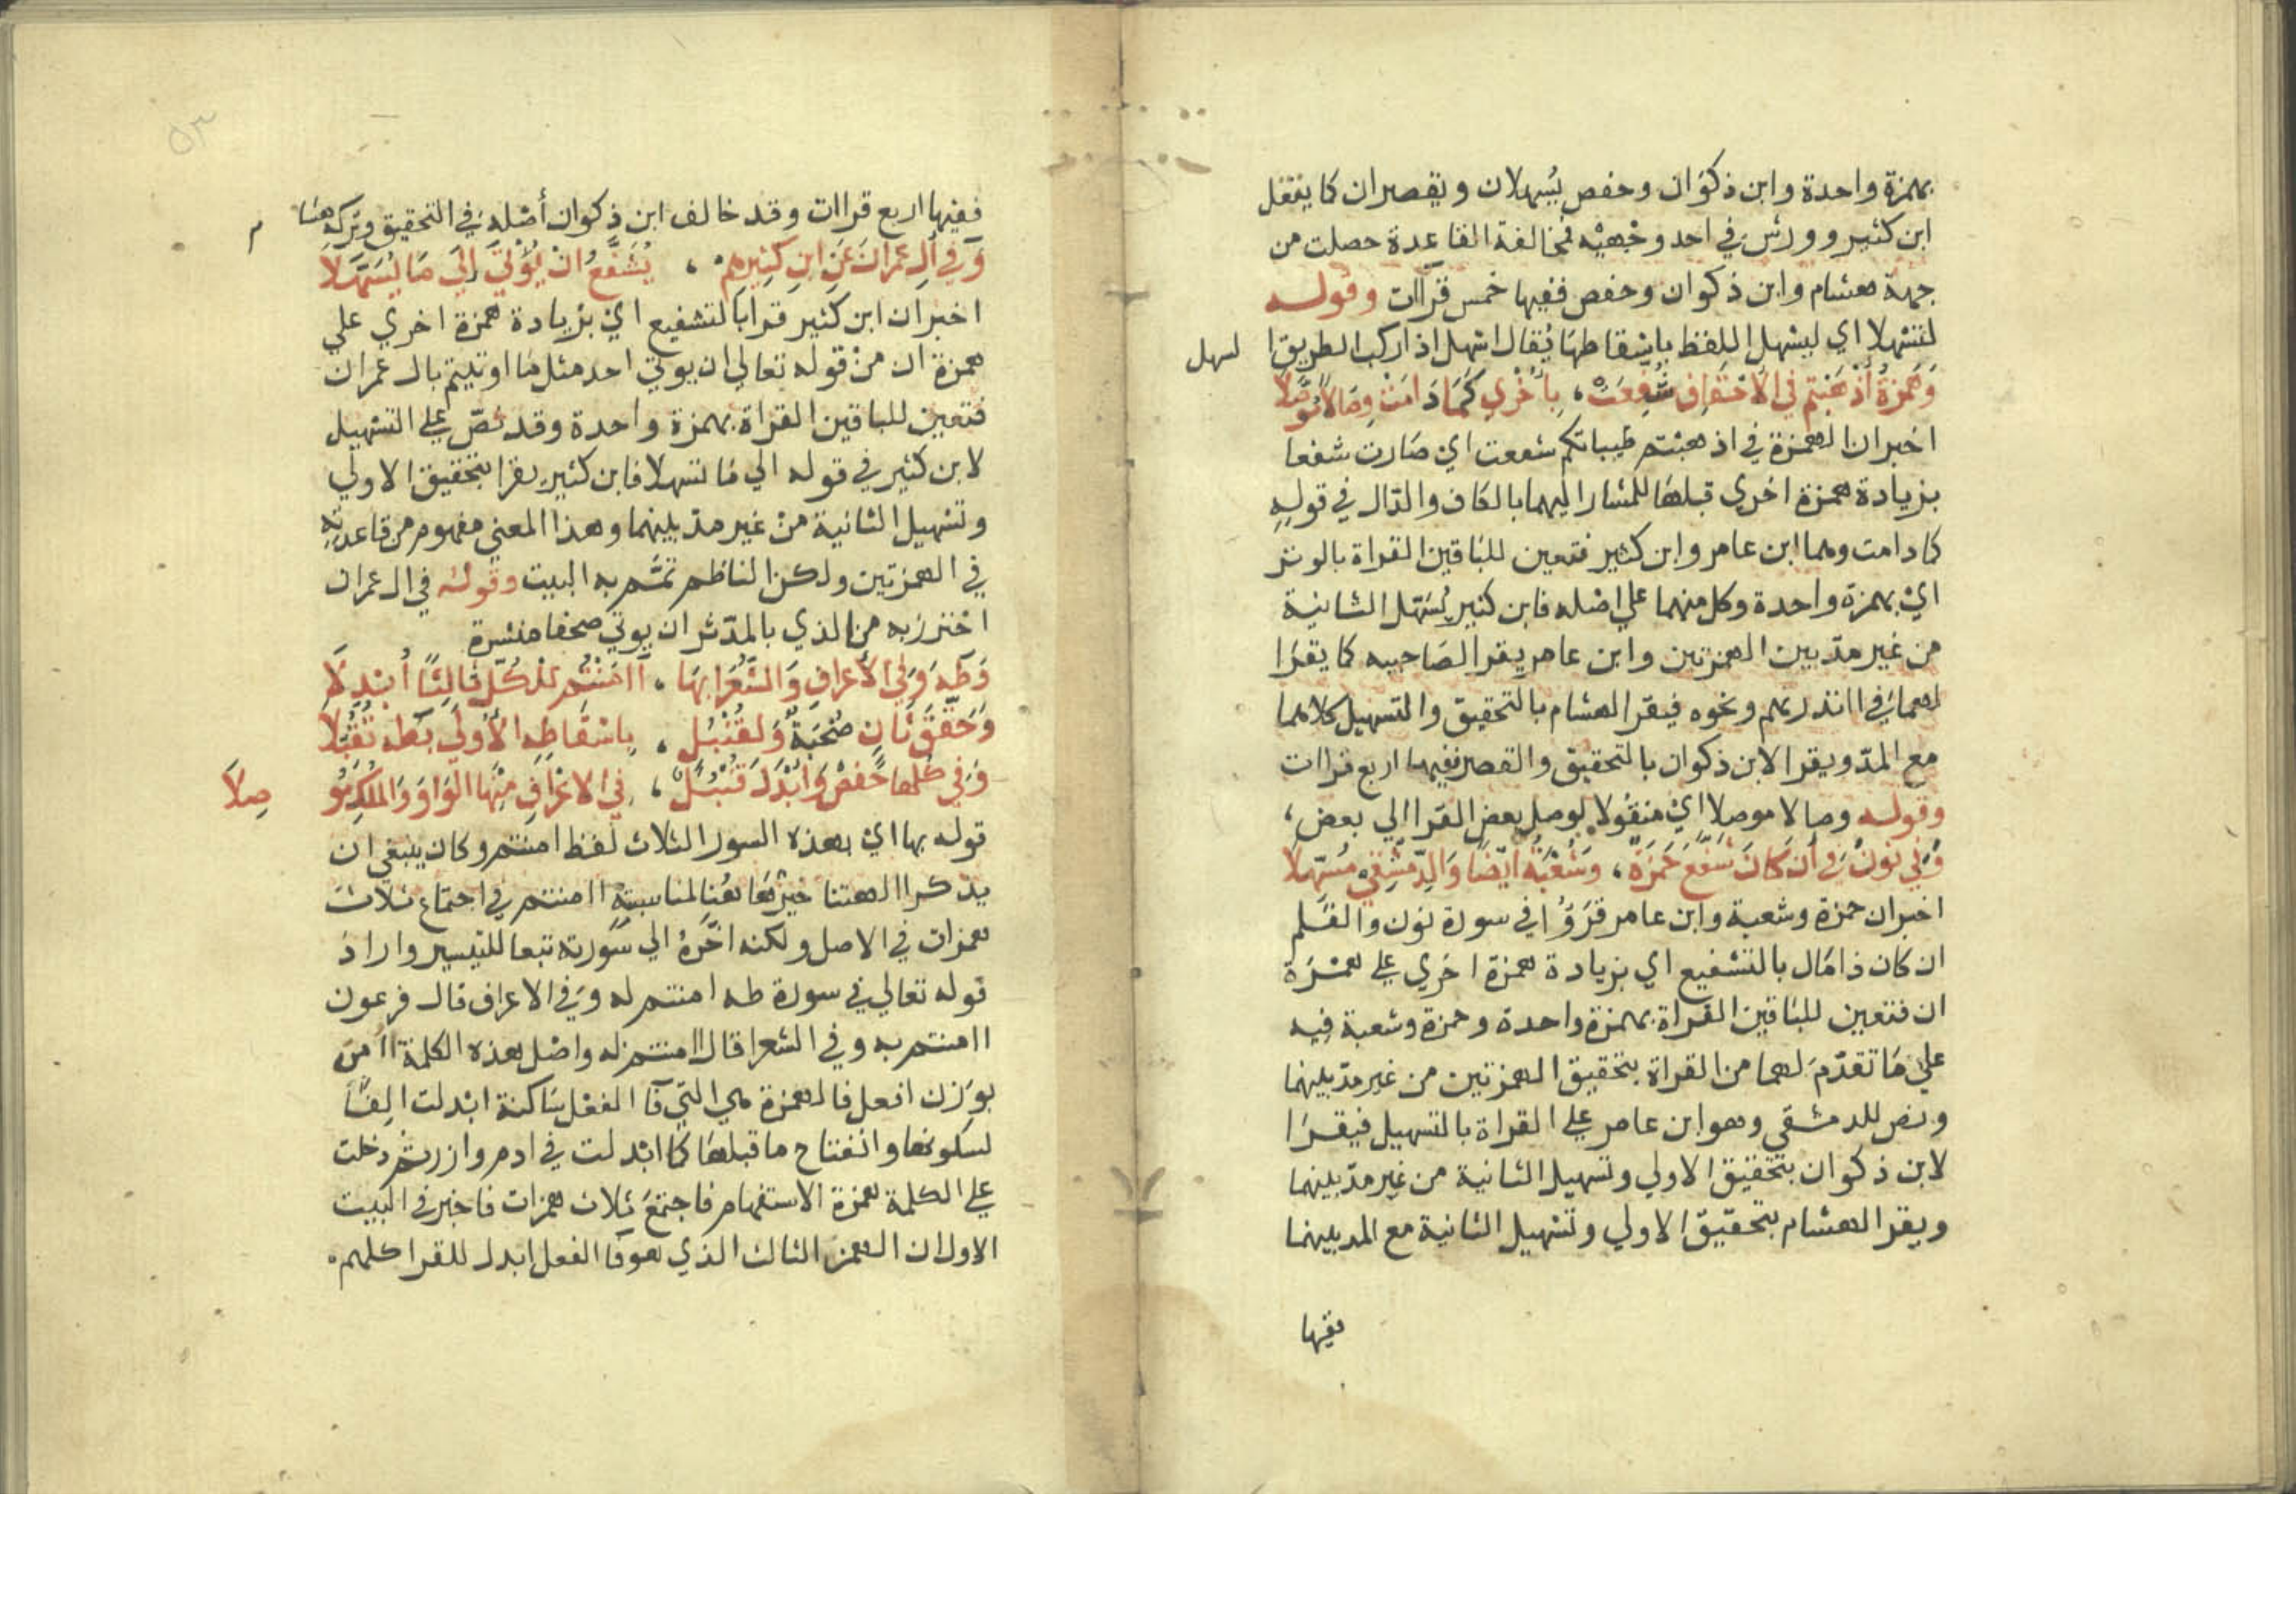 بهمزة واحدة وابن ذكوان وحفص يُسهلان ويقصران كما يفعل
ابن كثير وورش في احد وجهيْه فمخالفة القاعدة حصلت من
جهة هشام وابن ذكوان وحفص ففيها خمس قراات وقوله
لتسهلا اي ليسهل اللفظ باسقاطها يُقال اسهل اذا ركب الطريق ا
لسهل
وَهَمزةُ أَذْهَبْتم في الاحْقَافِ شُفِّعَتْ، بأُخْرَي كَمَا دَامَتْ وِصَالاً مُوَصَّلاَ
اخبر ان الهمزة في اذهبتم طيباتكم شفعت اي صَارت شفعا
بزيادة همزة اخري قبلها للمشار اليهما بالكاف والدّال في قولهِ
كما دامت وهما ابن عامر وابن كثير فتعين للبَاقين القراة بالوتر
ايْ بهمزة واحدة وكل منهما علي اصله فابن كثير يُسَهل الثانية
من غير مدّ بين الهمزتين وابن عامر يقرا لصَاحبيه كما يقرَا
لهما في اانذرتهم ونحوه فيقرا لهشام بالتحقيق والتسهيل كلاهما
مع المدّ ويقرا لابن ذكوان بالتحقيق والقصر ففيها اربع قراات
وقوله وصالا موصلا ايْ منقولا يوصل بعض القرا الي بعض،
وَفِي نُونَ فِي أَن كَانَ شَفَّعَ حَمزَةٌ، وَشُعْبَةُ أيْضًا وَالدِّمَشْقِي مُسَهِّلاَ
اخبر ان حمزة وشعبة وابن عامر قرؤُا في سورة نون والقَلم
ان كان ذا مَال بالتشفيع اي بزيادة همزة اخري علي همزة
ان فتعين للبَاقين القراة بهمزة واحدة وحمزة وشعبة فيه
علي مَا تقدّمَ لهما من القراة بتحقيق الهمزتين من غير مدّ بينهما
ونص للدمشقي وهو ابن عامر علي القراة بالتسهيل فيقرَا
لابن ذكوان بتحقيق الاولي وتسهيل الثانية من غير مدّ بينهما
ويقرا لهشام بتحقيق الاولي وتسْهيل الثانية مع المد بينهما
ففيها
٥٣
ففيها اربع قراات وقد خالف ابن ذكوان أصْله في التحقيق وتركه هشا
م
وَفِي أَلِ عمرَانَ عَنِ ابنِ كَثِيرِهِمْ، يُشَفَّعُ انْ يُؤْتَيَ الَي مَا تُسَهَّلاَ
اخبر ان ابن كثير قرا بالتشفيع ايْ بزيادة همزة اخري علي
همزة ان منْ قوله تعالي ان يوتي احد مثل مَا اوتيتم بال عمران
فتعين للباقين القراة بهمزة واحدة وقد نصّ علي التسْهيل
لابن كثير في قوله الي مَا تسهلا فابن كثير يقرا بتحقيق الاولي
وتسْهيل الثانية منْ غير مدّ بينهما وهذا المعني مفهوم من قاعدتهِ
في الهمزتين ولكن الناظم تمّم به البيت وقوله في ال عمران
احترز به من الذي بالمدّثر ان يوتي صحفا منشرة
وَطَه وَفِي الأَعْرافِ وَالشُّعَرا بِهَا، أَاامَنْتُم لِلْكُلِّ ثَالِثًا أُبْدِلاَ
وَحَقَّقَ ثَانٍ صُحْبَةٌ وَلقُنْبُلٍ، بِاسْقَاطِهِ الأُولَي بطه تُقُبِّلاَ
وَفِي كُلِّها حَفْصٌ وَأبْدَلَ قُنْبُلٌ، في الاعْرَافِ مِنْهَا الوَاوَ وَالمُلْكِ مُو
صِلاَ
قوله بها اي بهذه السور الثلاث لفظ امنتم وكان ينبغي ان
يذكر االهتنا خيْر هَا هُنا لمناسبتهِ اامنتم في اجتماع ثلاث
همزات في الاصل ولكنه اخَّرهُ الي سُورته تبعا للتيسير واراد
قوله تعالي في سورة طه امنتم له وفي الاعراف قال فرعون
اامنتم به وفي الشعرا قال اامنتم له واصْل هذه الكلمة اأمن
بوَزن افعل فالهمزة هي التي فَا الفعْل سَاكنة ابْدلت الِفًا
لسكونها وانفتاح ما قبلها كما ابْدلت في ادم وازر ثم دخلت
علي الكلمة همزة الاستفهام فاجتمعَ ثلاث همزات فاخبر في البيت
الاول ان الهمز الثالث الذي هو فا الفعل ابدل للقرا كلهم.